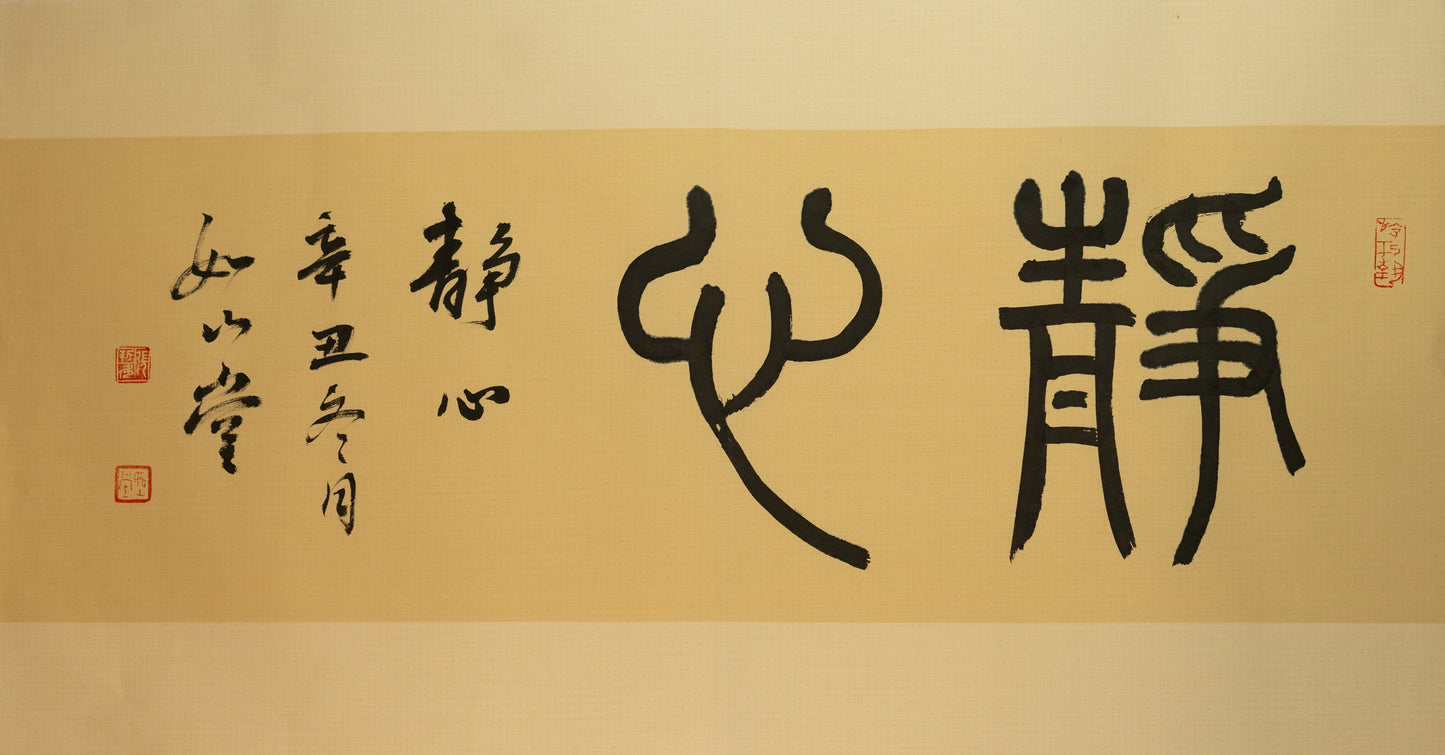 靜心
静心
辛丑冬月
如山堂